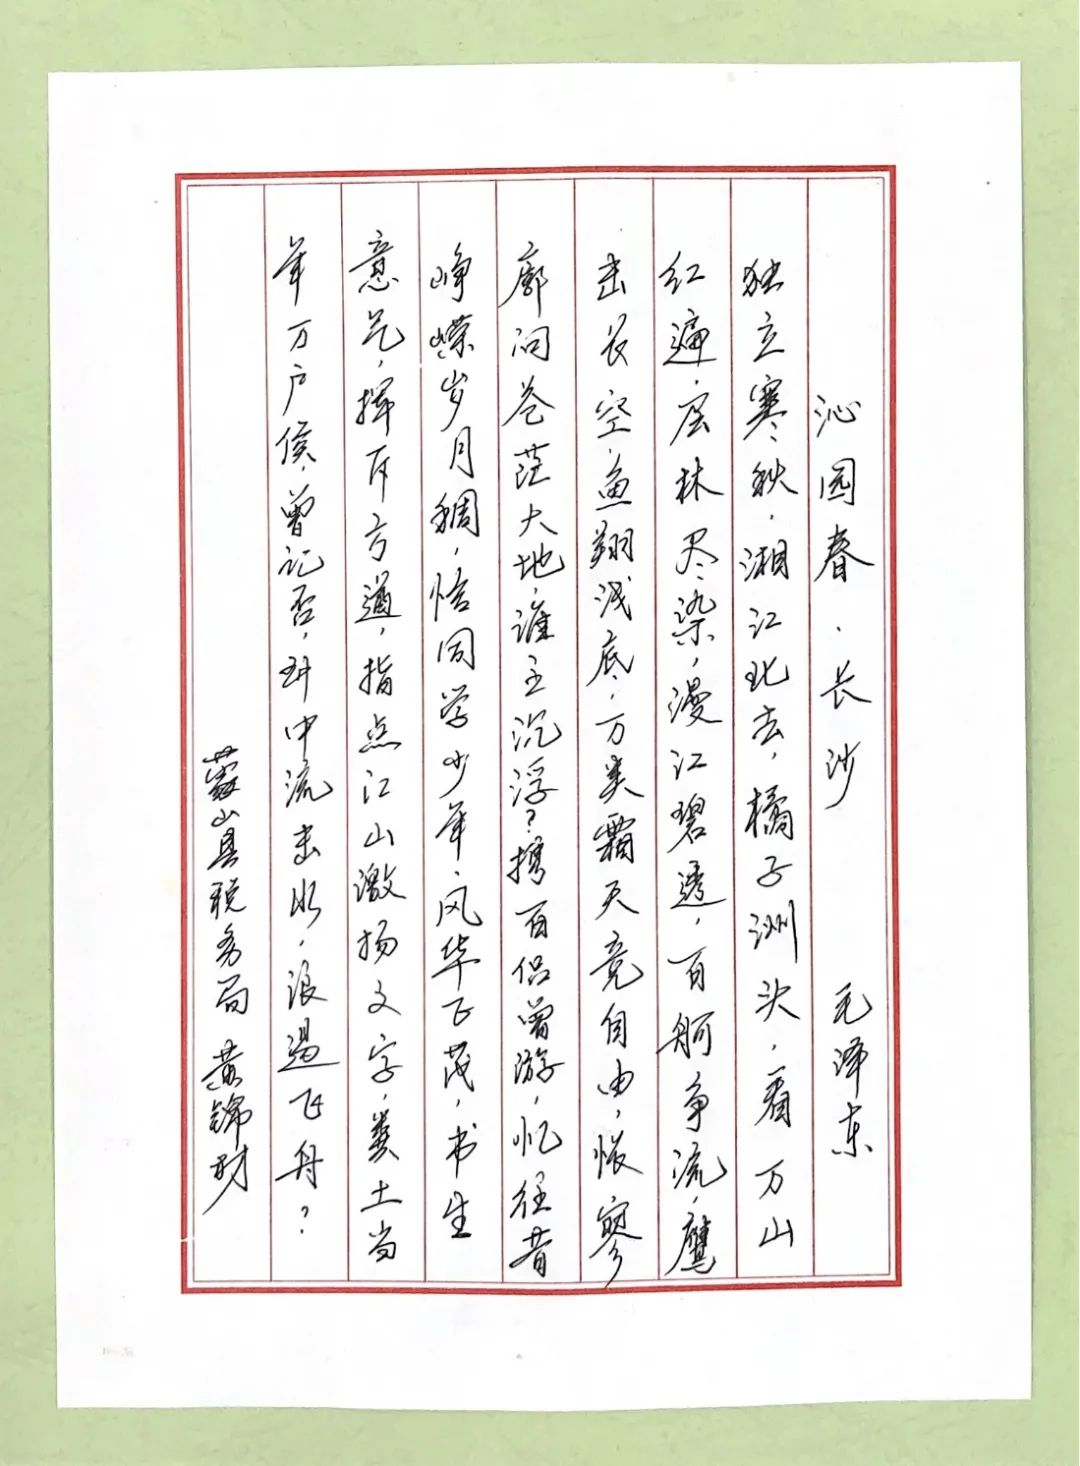 沁园春·长沙 毛泽东
独立寒秋，湘江北去，橘子洲头，看万山
红遍，层林尽染，漫江碧透，百舸争流，鹰
击长空，鱼翔浅底，万类霜天竞自由，怅寥
廓问苍茫大地，谁主沉浮？携百侣曾游，忆往昔
峥嵘岁月稠，恰同学少年，风华正茂，书生
意气，挥斥方遒，指点江山激扬文字，粪土当
年万户侯，曾记否，到中流击水，浪遏飞舟？
蒙山县税务局 黄锦财